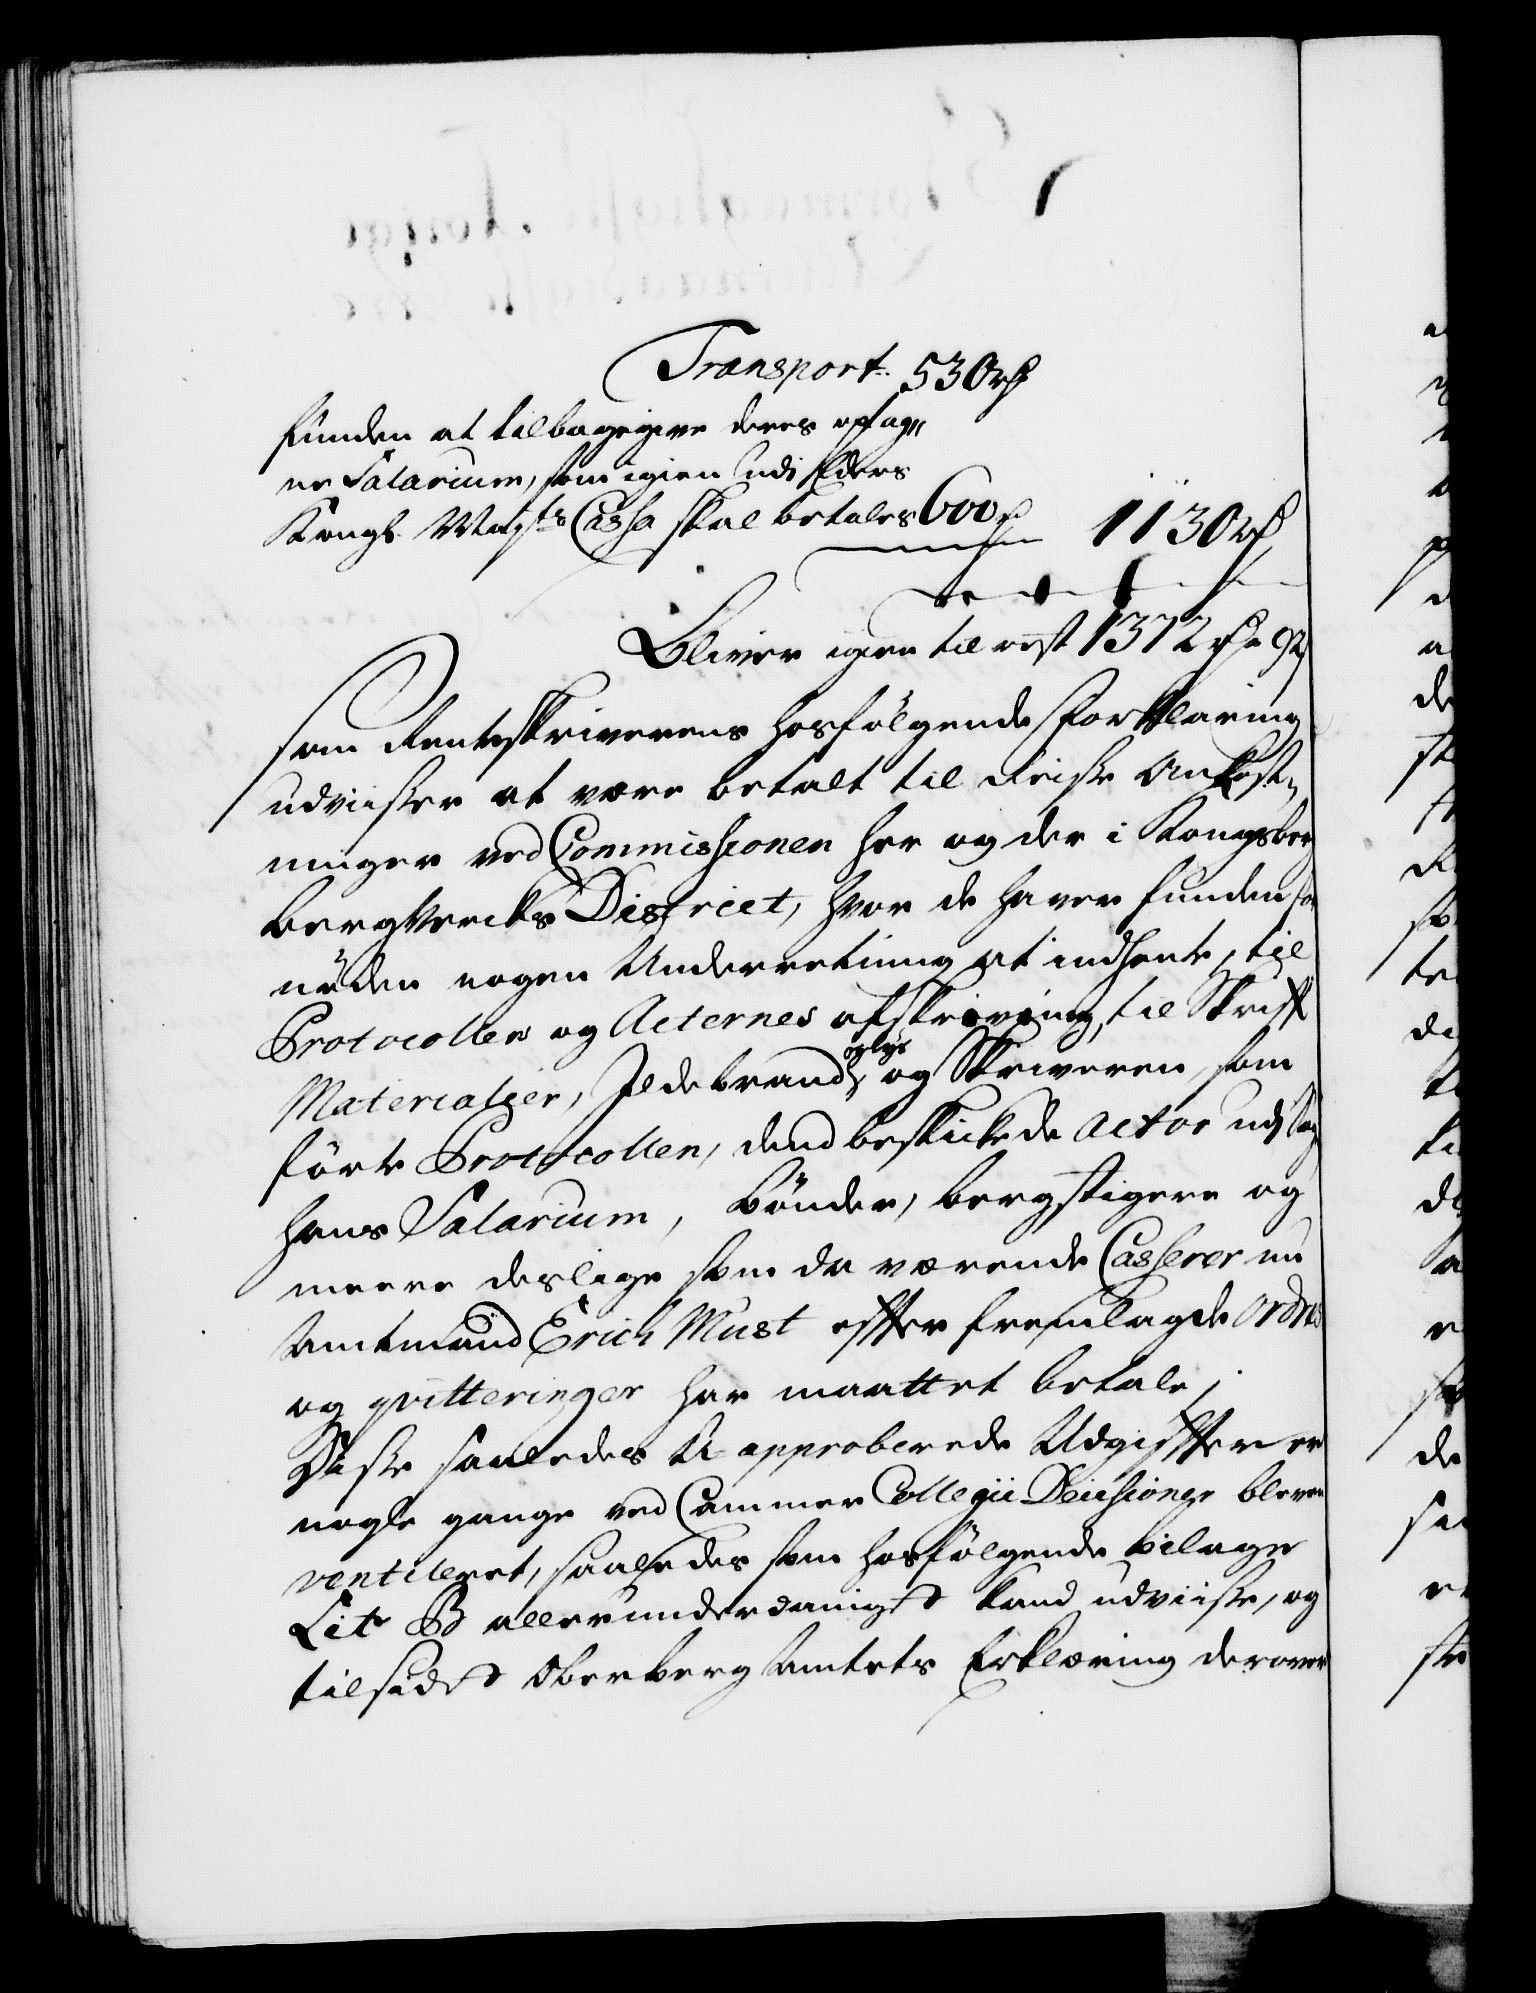 Transport 530 rd
funden at tilbagegive deres opsag„
ne Salarium, som igien udi Eders
Kongl. Mayts Cassa skal betales 600 rd 1130 rd
Bliver igien til rest 1372 rd 92
som Rentskriverens hosfölgende forklaring
udviisser at være betalt til Reisse Omkost„
ninger ved Commissionen her og der i Kongsberg
bergVercks District, hvor de haver funden for
nöden nogen Underretning at indhente, til
Protocollens og Acternes afskriving, til Skriff
Materialier, Ildebrand, og Skriveren, som
oglys
förte Protocollen, dend beskickede Actor udi Sagen
hans Salarium, bönder, bergstigere og
meere deslige som da værende Casserer nu
Amtmand Erich Must effter fremlagde Ordres
og qvitteringer har maattet betale;
Disse saaledes U-approberede Udgiffter er
nogle gange ved Cammer Collegii Decisioner bleven
ventileret, saaledes som hosfölgende bilager
Lit B allerunderdanigst kand udviisse, og
tilsidst Oberberg Amtets Erklæring derover